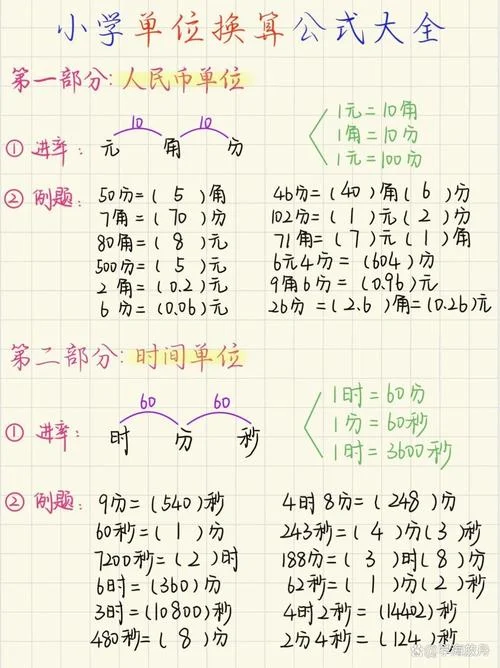 小学单位换算公式大全
第一部分:人民币单位
10 10
① 进率: 元 角 分
1元=10角
1角=10分
1元=100分
② 例题: 50分=( 5 )角 46分=(40)角(6)分
7角=(70)分 102分=(1)元(2)分
80角=(8)元 71角=(7)元(1)角
500分=(5)元 6元4分=(604)分
2角=(0.2)元 9角6分=(0.96)元
6分=(0.06)元 26分=(2.6)角=(0.26)元
第二部分:时间单位
60 60
① 进率: 时 分 秒
1时=60分
1分=60秒
1时=3600秒
② 例题: 9分=(540)秒 4时8分=(248)分
60秒=(1)分 243秒=(4)分(3)秒
7200秒=(2)时 188分=(3)时(8)分
6时=(360)分 62秒=(1)分(2)秒
3时=(10800)秒 4时2秒=(14402)秒
480秒=(8)分 2分4秒=(124)秒